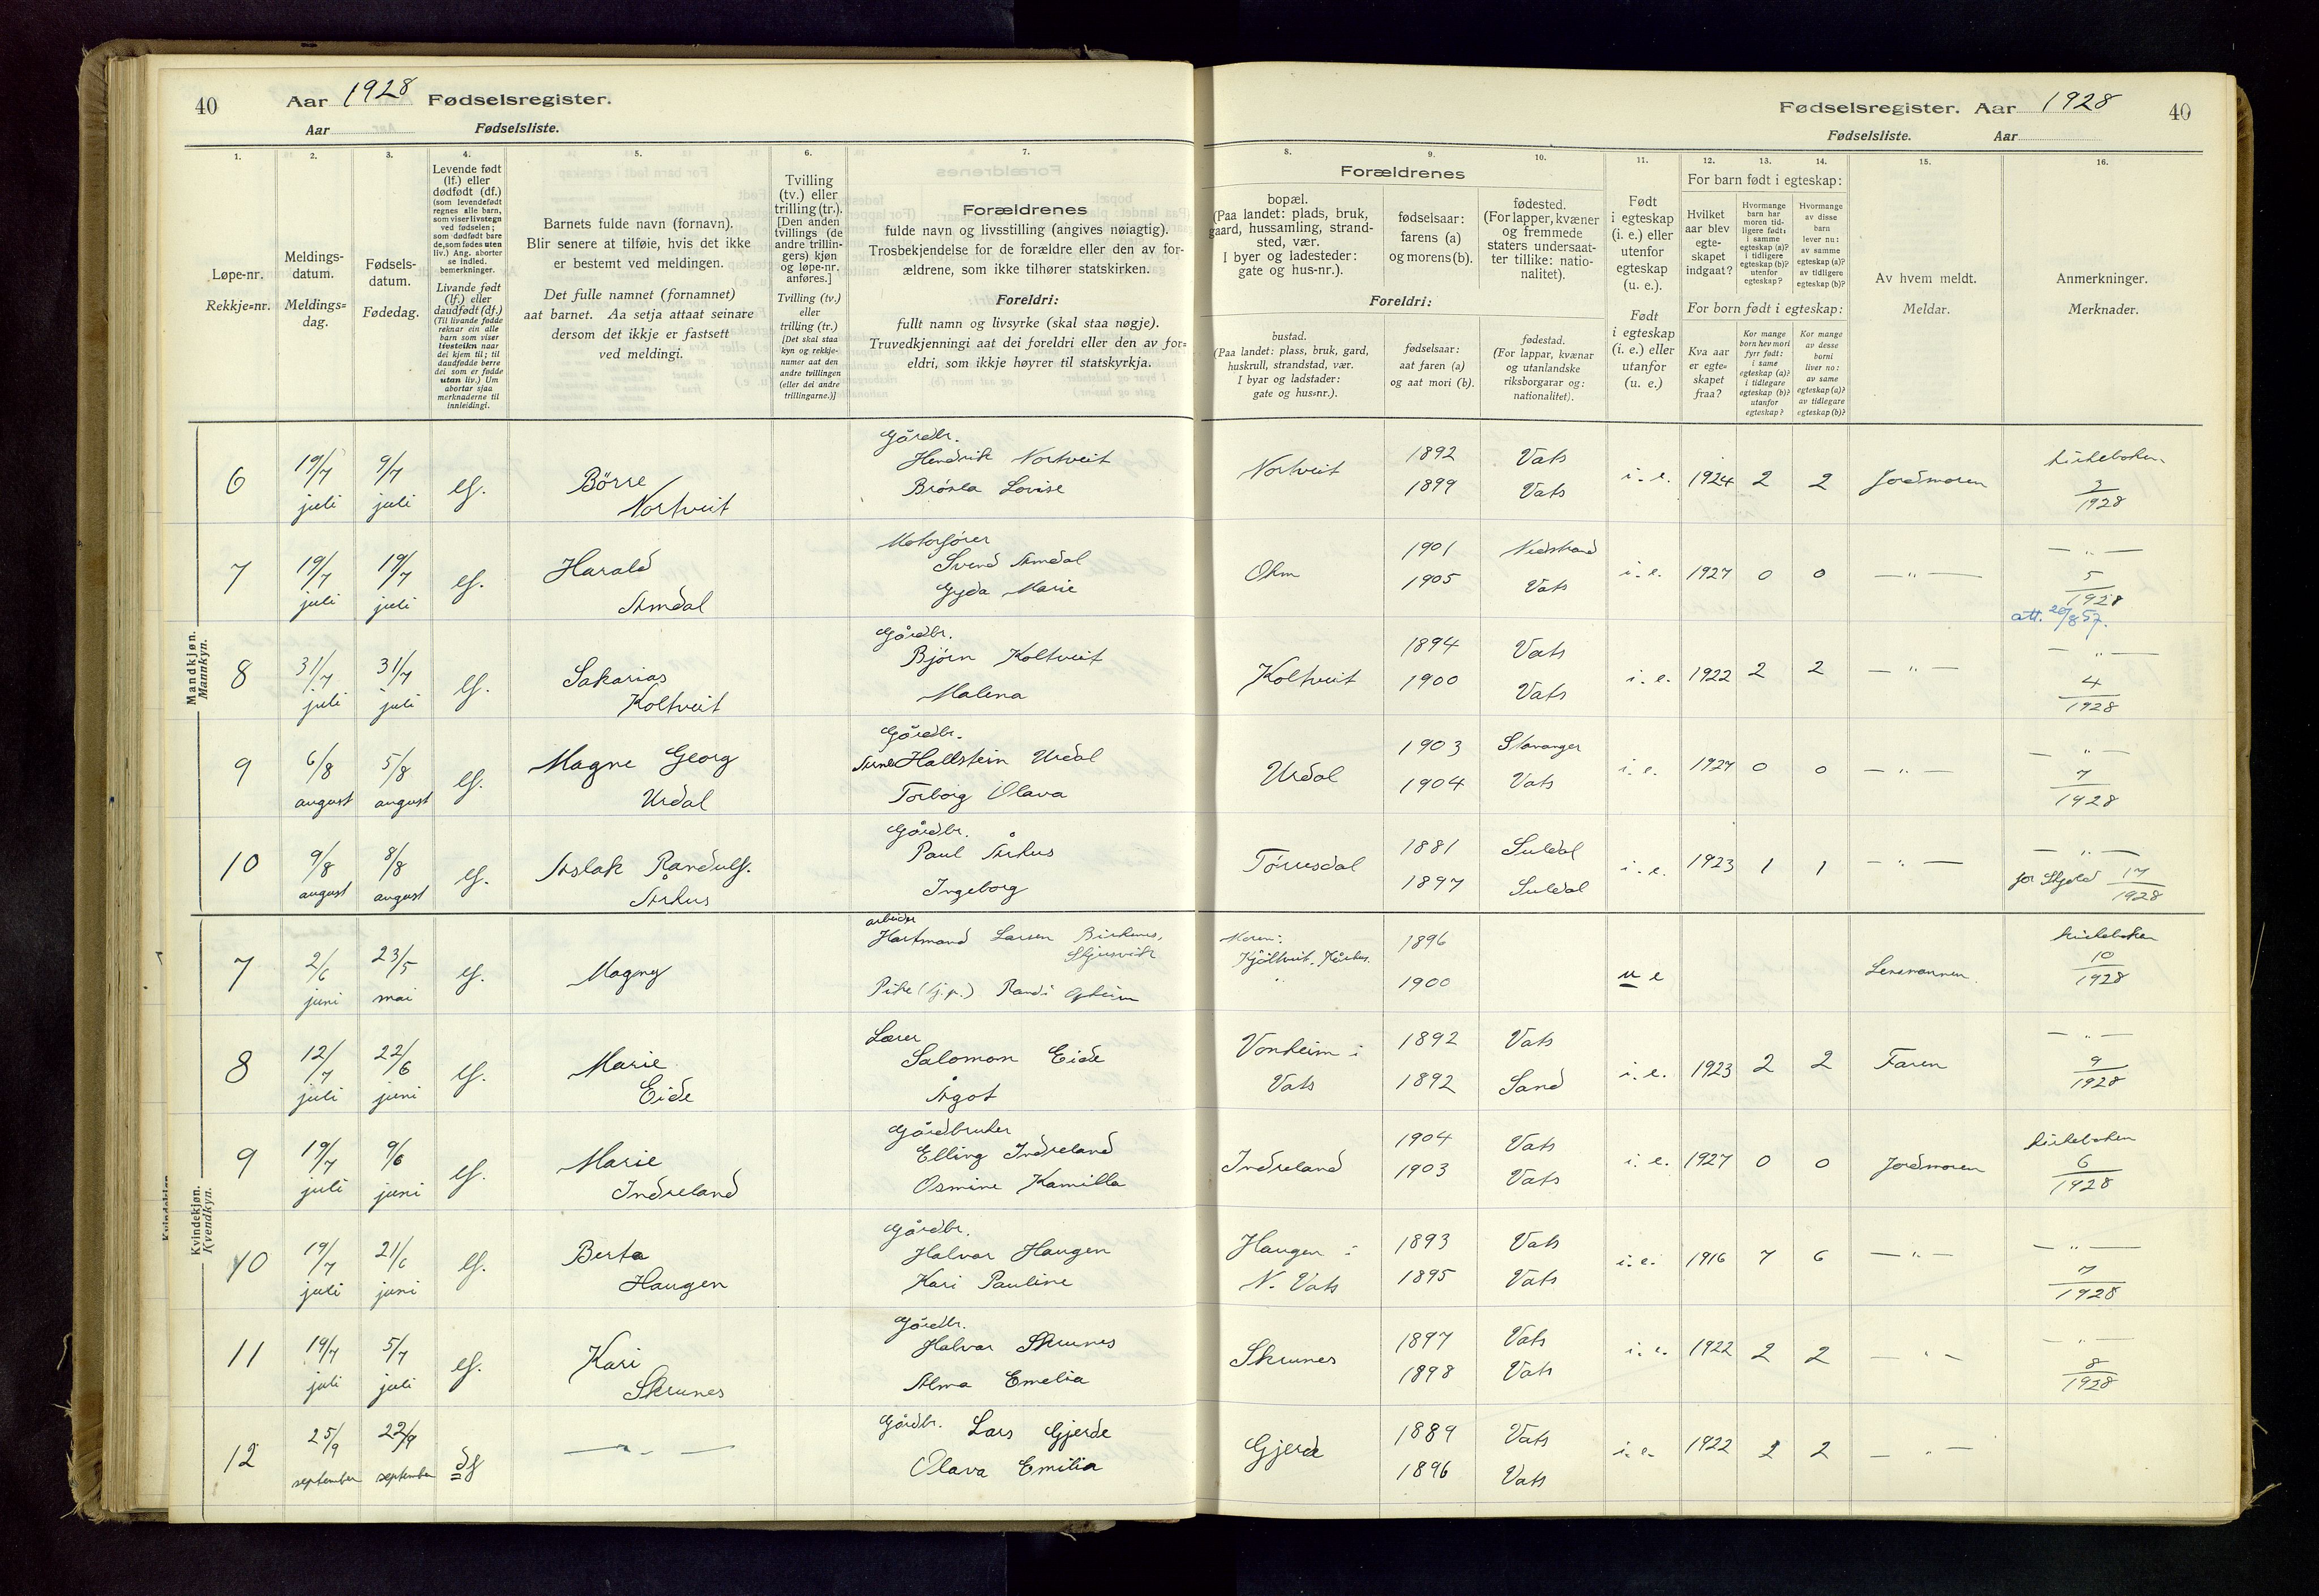 40
Aar 1928 Fødselsregister.
Aar Fødselsliste.
Fødselsregister. Aar 1928
40
Fødselsliste. Aar
1. 2. 3. 4. 5. 6. 7.
Løpe-nr.
Rekkje=nr.
Meldings-
datum.
Meldings=
dag.
Fødsels-
datum.
Fødedag.
Levende født
(lf.) eller
dødfødt (df.)
(som levendefødt
regnes alle barn,
som viser livstegn
ved fødselen;
som dødfødt bare
de, som fødes uten
liv.) Ang. aborter
se indled.
bemerkninger.
Livande født
(lf.) eller
daudfødt (df.)
(Til livande fødde
reknar ein alle
barn som viser
livsteikn naar
dei kjem til; til
daudfødde berre
dei som er fødde
utan liv.) Um
abortar sjaa
merknaderne til
innleidingi.
Barnets fulde navn (fornavn).
Blir senere at tilføie, hvis det ikke
er bestemt ved meldingen.
Det fulle namnet (fornamnet)
aat barnet. Aa setja attaat seinare
dersom det ikkje er fastsett
ved meldingi.
Tvilling
(tv.) eller
trilling (tr.).
[Den anden
tvillings (de
andre trillin-
gers) kjøn
og løpe-nr.
anføres.]
Tvilling (tv.)
eller
trilling (tr.)
[Det skal staa
kyn og rekkje-
numer aat den
andre tvillingen
(eller dei andre
trillingarne.)]
Forældrenes
fulde navn og livsstilling (angives nøiagtig).
Trosbekjendelse for de forældre eller den av for-
ældrene, som ikke tilhører statskirken.
Foreldri:
fullt namn og livsyrke (skal staa nøgje).
Truvedkjenningi aat dei foreldri eller den av for=
eldri, som ikkje høyrer til statskyrkja.
8. 9. 10. 11. 12. 13. 14. 15. 16.
Forældrenes
bopæl.
(Paa landet: plads, bruk,
gaard, hussamling, strand-
sted, vær.
I byer og ladesteder:
gate og hus-nr.).
fødselsaar:
farens (a)
og morens (b).
fødested.
(For lapper, kvæner
og fremmede
staters undersaat-
ter tillike: natio-
nalitet).
Foreldri:
bustad.
(Paa landet: plass, bruk, gard,
huskrull, strandstad, vær.
I byar og ladstader:
gate og hus=nr.).
fødselsaar:
aat faren (a)
og aat mori (b).
fødestad.
(For lappar, kvænar
og utanlandske
riksborgarar og:
nationalitet).
Født
i egteskap
(i. e.) eller
utenfor
egteskap
(u. e.).
Født
i egteskap
(i. e.) eller
utanfor
(u. e.)
For barn født i egteskap:
Hvilket
aar blev
egte-
skapet
indgaat?
Hvormange
barn har
moren tid-
ligere født:
i samme
egteskap (a)?
i tidligere
egteskap (b)?
utenfor
egteskap?
Hvormange
av disse
barn
lever nu:
av samme
egteskap (a)?
av tidligere
egteskap (b)?
For born født i egteskap:
Kva aar
er egte-
skapet
fraa?
Kor mange
born hev mori
fyrr født:
i same
egteskap (a)?
i tidlegare
egteskap (b)?
utanfor
egteskap?
Kor mange
av desse
borni
liver no:
av same
egteskap (a)?
av tidlegare
egteskap (b)?
Av hvem meldt.
Meldar.
Anmerkninger.
Merknader.
Mandkjøn.
Mannkyn.
6 19/7 juli 9/7 juli lf. Børre Nortveit
Gårdbr. Hendrik Nortveit
Lovise
Nortveit 1892 1899 Vats Vats i. e. 1924 2 2 Jordmoren kirkeboken 3/1928
7 19/7 juli 19/7 juli lf. Harald Amdal
Motorfører Svend Amdal
Gyda Marie
1901 1905 Nedstrand Vats i. e. 1927 0 0 — " — — " — 5/1928
att. 20/8 57.
8 31/7 juli 31/7 juli lf. Sakarias Koltveit
Gårdbr. Bjørn Koltveit
Malena
Koltveit 1894 1900 Vats Vats i. e. 1922 2 2 — " — — " — 4/1928
9 6/8 august 5/8 august lf. Magne Georg Urdal
Gårdbr. Arne Hallstein Urdal
Torborg Olava
Urdal 1903 1904 Stavanger Vats i. e. 1927 0 0 — " — — " — 7/1928
10 9/8 august 8/8 august lf. Aslak Randulf. Århus
Gårdbr. Paul Århus
Ingeborg
Tørresdal 1881 1897 Suldal Suldal i. e. 1923 1 1 — " — — " — for Skjold 17/1928
Kvindekjøn.
Kvendkyn.
7 2/6 juni 23/5 mai lf. Magny
arbeider Hartmand Larsen Birkenes,
Pike (tj.p.) Randi Opheim
Moren: 1896 1900 u e Lensmannen. kirkeboken 10/1928
8 12/7 juli 22/6 juni lf. Marie Eide
Lærer Salomon Eide
Ågot
Vonheim i Vats 1892 1892 Vats Sand i. e. 1923 2 2 Faren — " — 9/1928
9 19/7 juli 9/6 juni lf. Marie Indreland
Gårdbruker Elling Indreland
Osmine Kamilla
Indreland 1904 1903 Vats Vats i. e. 1927 0 0 Jordmoren kirkeboken 6/1928
10 19/7 juli 21/6 juni lf. Berta Haugen
Gårdbr. Halvar Haugen
Kari Pauline
Haugen i N. Vats 1893 1895 Vats Vats i. e. 1916 7 6 — " — — " — 7/1928
11 19/7 juli 5/7 juli lf. Kari Skrunes
Gårdbr. Halvar Skrunes
Alma Emelia
Skrunes 1897 1898 Vats Vats i. e. 1922 2 2 — " — — " — 8/1928
12 25/9 september 22/9 september df — " —
Gårdbr. Lars Gjerde
Olava Emilia
Gjerde 1889 1896 Vats Vats i. e. 1922 2 2 — " —